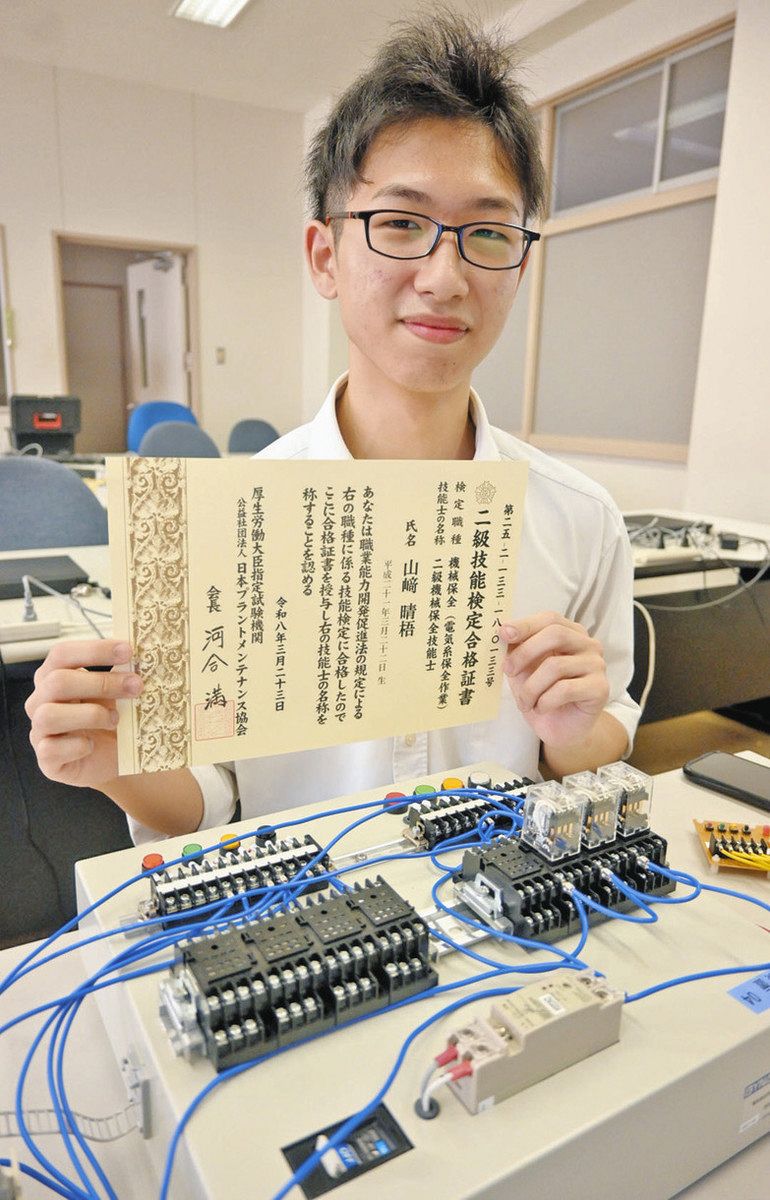 第二五-二-一三三-一八-〇一三三号
二級技能検定合格証書
検定職種　機械保全(電気系保全作業)
技能士の名称　二級機械保全技能士
氏名　山﨑晴梧
平成二十一年三月二十二日 生
あなたは職業能力開発促進法の規定による
右の職種に係る技能検定に合格したので
ここに合格証書を授与し右の技能士の名称を
称することを認める
令和八年三月二十三日
厚生労働大臣指定試験機関
公益社団法人 日本プラントメンテナンス協会
会長 河合 満
OFF